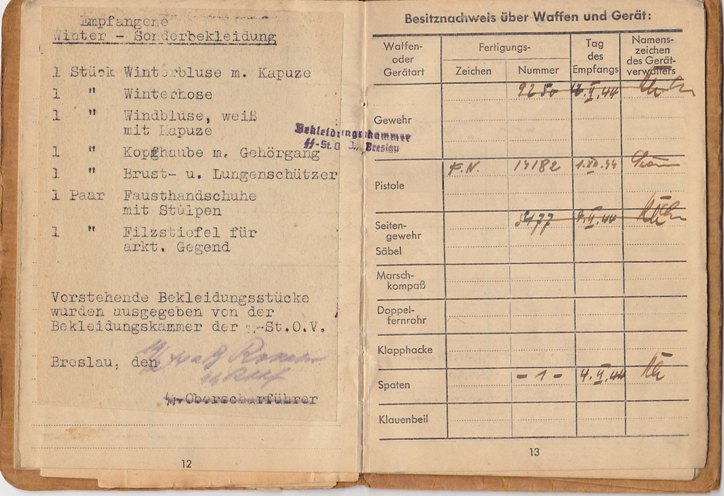 Empfangene
Winter - Sonderbekleidung
1 Stück Winterbluse m. Kapuze
1 " Winterhose
1 " Windbluse, weiß
mit Kapuze
1 " Kopfhaube m. Gehörgang
1 " Brust- u. Lungenschützer
1 Paar Fausthandschuhe
mit Stulpen
1 " Filzstiefel für
arkt. Gegend
Bekleidungskammer
St.O. Breslau
Vorstehende Bekleidungsstücke
wurden ausgegeben von der
Bekleidungskammer der -St.O.V.
Breslau, den
Oberscharführer
12
Besitznachweis über Waffen und Gerät:
Waffen- oder Gerätart
Fertigungs-
Zeichen
Nummer
Tag des Empfangs
Namenszeichen des Gerätverwalters
Gewehr 9250
Pistole F.N. 14182
Seitengewehr 5177
Säbel
Marschkompaß
Doppelfernrohr
Klapphacke
Spaten - 1 - 4.II.44
Klauenbeil
13